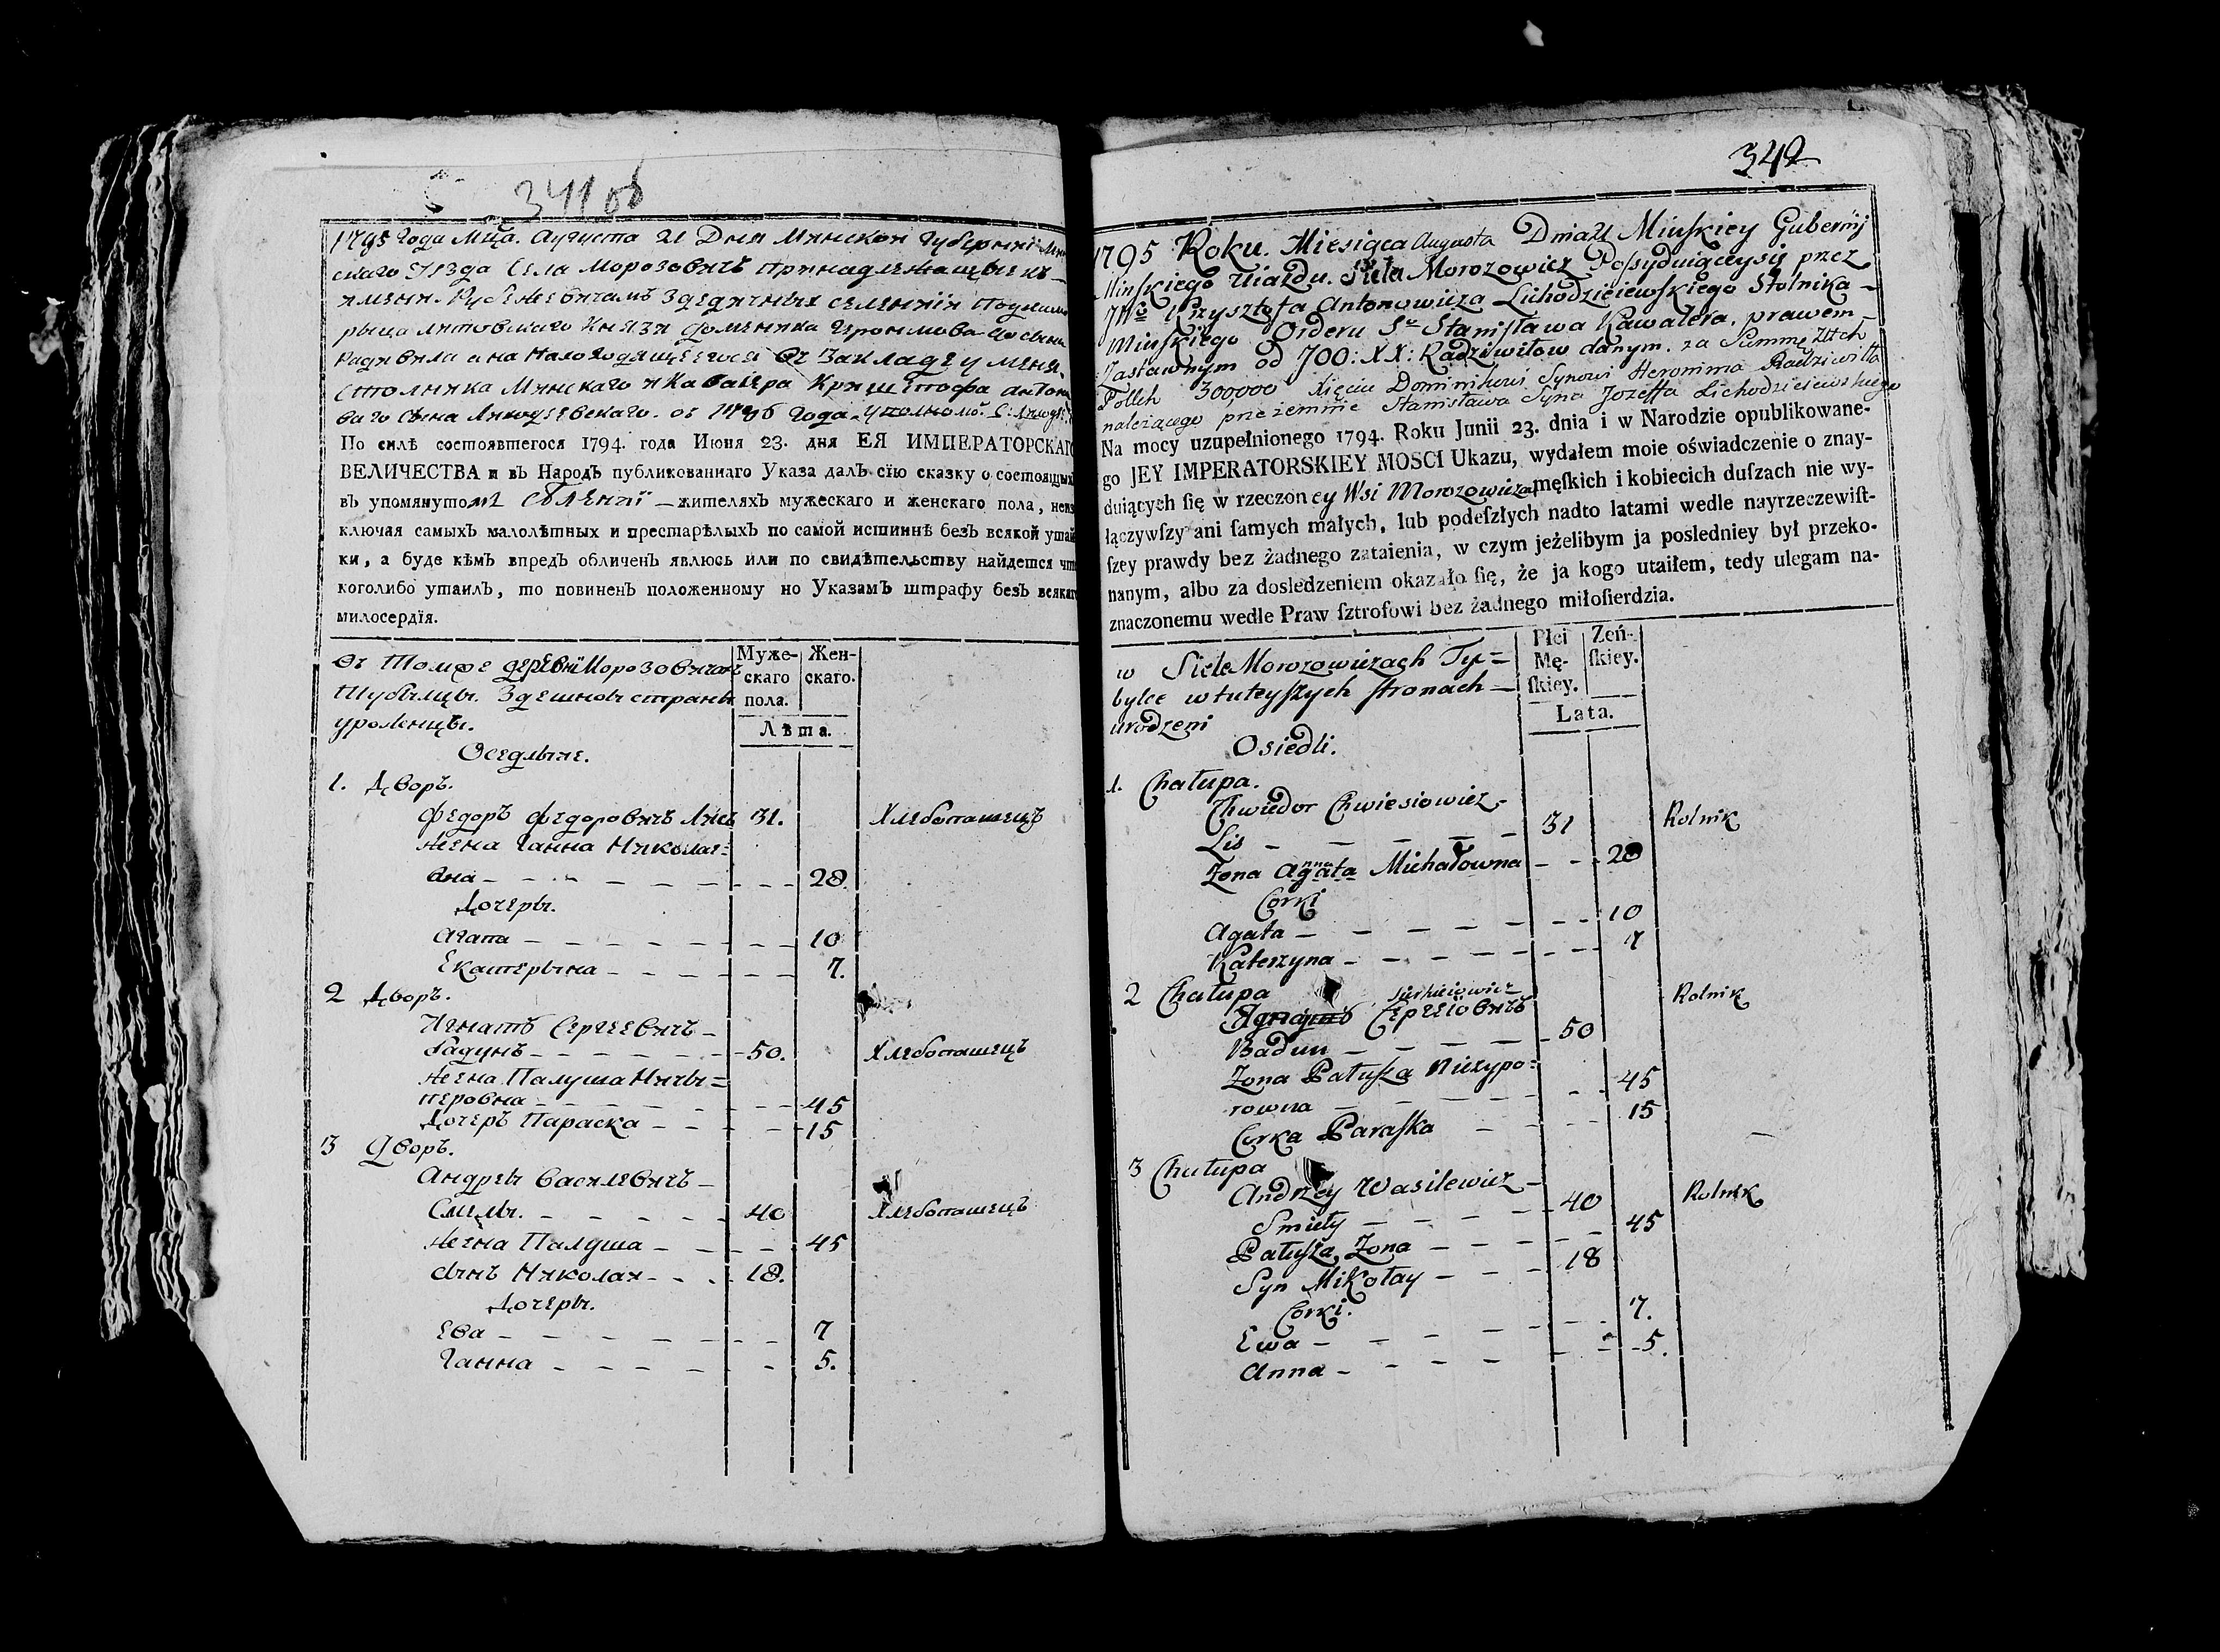 341 об
1795 Года Мца. Августа 21 Дня Минской Губерний Мин
скаго Уезда Села Морозовичъ принадлежащые къ
имени
рыца Литовскаго Князя Доменика Сына
Радивила а на Мало Закладе у меня
Столника Минскаго и Кавалера Криштофа Антоно
ваго сына Года
По силѣ состоявшегося 1794. года Июня 23. дня ЕЯ ИМПЕРАТОРСКАГО
ВЕЛИЧЕСТВА и въ Народъ публикованнаго Указа далъ сїю сказку о состоящихъ
въ упомянутомъ селенїи — жителяхъ мужескаго и женскаго пола, неиз
ключая самыхъ малолѣтныхъ и престарѣлыхъ по самой истиннѣ безъ всякой утай
ки, а буде кѣмъ впредъ обличенъ явлюсь или по свидѣтельству найдется что
коголибо утаилъ, то повиненъ положенному по Указамъ штрафу безъ всякаго
милосердїя.
Въ Томже деревни Морозовичахъ
Тубылцы. Здешной страны
уроженцы.
Муже-
скаго
пола.
Жен-
скаго.
Лѣта.
Оседлыие.
1. Дворъ.
Федоръ Федоровичъ Лисъ 31. Хлебопашецъ
жена Ганна Николае=
вна - - - - - - - - - 28.
Дочеры.
Агата - - - - - - - - 10
Екатерына - - - - - - 7.
2 Дворъ.
Игнатъ Сергеевичъ -
Бадунъ - - - - - - - 50. Хлебопашецъ
жена Палуша Ничы=
перовна - - - - - - - 45
Дочеръ Параска - - - - 15
3 Дворъ.
Андреы Василевичъ -
Смелы. - - - - - - 40 Хлебопашецъ
жена Палуша - - - - - 45
сынъ Николаи - - - 18.
Дочеры.
Ева - - - - - - - - 7
Ганна - - - - - - 5.
342
1795 Roku. Miesiąca Augusta Dnia 21 Minſkiey Gubernij
Minſkiego Uiazdu. Sieła Morozowicz Poſsyduiąceysię przez
JWo Krzysztofa Antonowicza Lichodzieiewſkiego Stolnika -
Minſkiego Orderu Sgo Staniſława Kawalera. prawem -
Zastawnym od JOO: XX: Radziwiłow danym. za Summę Złłch
Pollch 300,000 Xięciu Dominikowi Synowi Heronima Radziwiłła
należącego przezemnie Stanisława Syna Jozeffa Lichodzieiewskiego
Na mocy uzupełnionego 1794. Roku Junii 23. dnia i w Narodzie opublikowane-
go JEY IMPERATORSKIEY MOSCI Ukazu, wydałem moie oświadczenie o znay-
duiących ſię w rzeczoney Wsi Morozowiczach męſkich i kobiecich duſzach nie wy-
łączywſzy ani ſamych małych, lub podeſzłych nadto latami wedle nayrzeczewiſt-
ſzey prawdy bez żadnego zataienia, w czym jeżelibym ja posledniey był przeko-
nanym, albo za dosledzeniem okazało ſię, że ja kogo utaiłem, tedy ulegam na-
znaczonemu wedle Praw ſztrofowi bez żadnego miłoſierdzia.
w Siele Morozowiczach Ty=
bylce w tuteyſzych ſtronach -
urodzeni
Płci
Mę-
ſkiey.
Zeń-
ſkiey.
Lata.
Osiedli.
1. Chałupa.
Chwiedor Chwiesiowicz -
Lis - - - - - 31 Rolnik
nna
Zona Agata Michałowna - - - 28
Corki
Agata - - - - - - - - 10
Katerzyna - - - - - - - 7
2 Chałupa
Sierhieiowicz Rolnik
Jgnaцтъ Сергеiовичъ
Badun - - - - - 50
Zona Pałuſza Niczypo=
rowna - - - - - - - 45
Corka Paraſka - - - - 15
3 Chałupa
Andrzey Wasilewicz - Rolnik
Smieły - - - - - 40
Pałuſza Zona - - - - - 45
Syn Mikołay - - - - 18
Corki.
Ewa - - - - - - 7.
Anna - - - - - - 5.